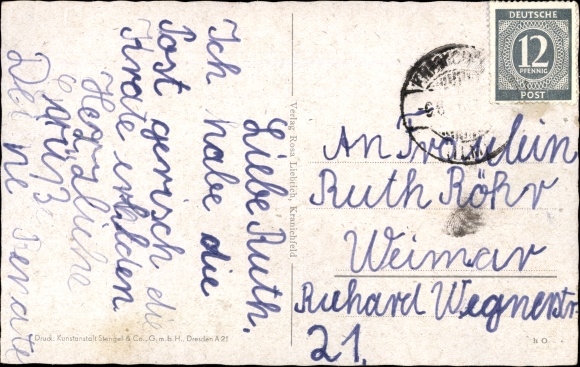 Liebe Ruth.
Ich habe die
Post gerisch die
Krate erhlden
Herzliche
Grüß
Deine Renate
Verlag Rosa Liebtich, Kranichfeld.
DEUTSCHE
12
PFENNIG
POST
An Fräulein
Ruth Röhr
Weimar
Richard Wegnerstr.
21.
Druck: Kunstanstalt Stengel & Co., G.m.b.H., Dresden A 21